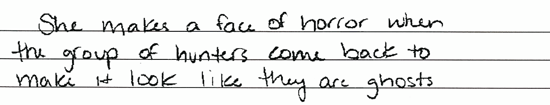 She makes a face of horror when
the group of hunters come back to
make it look like they are ghosts